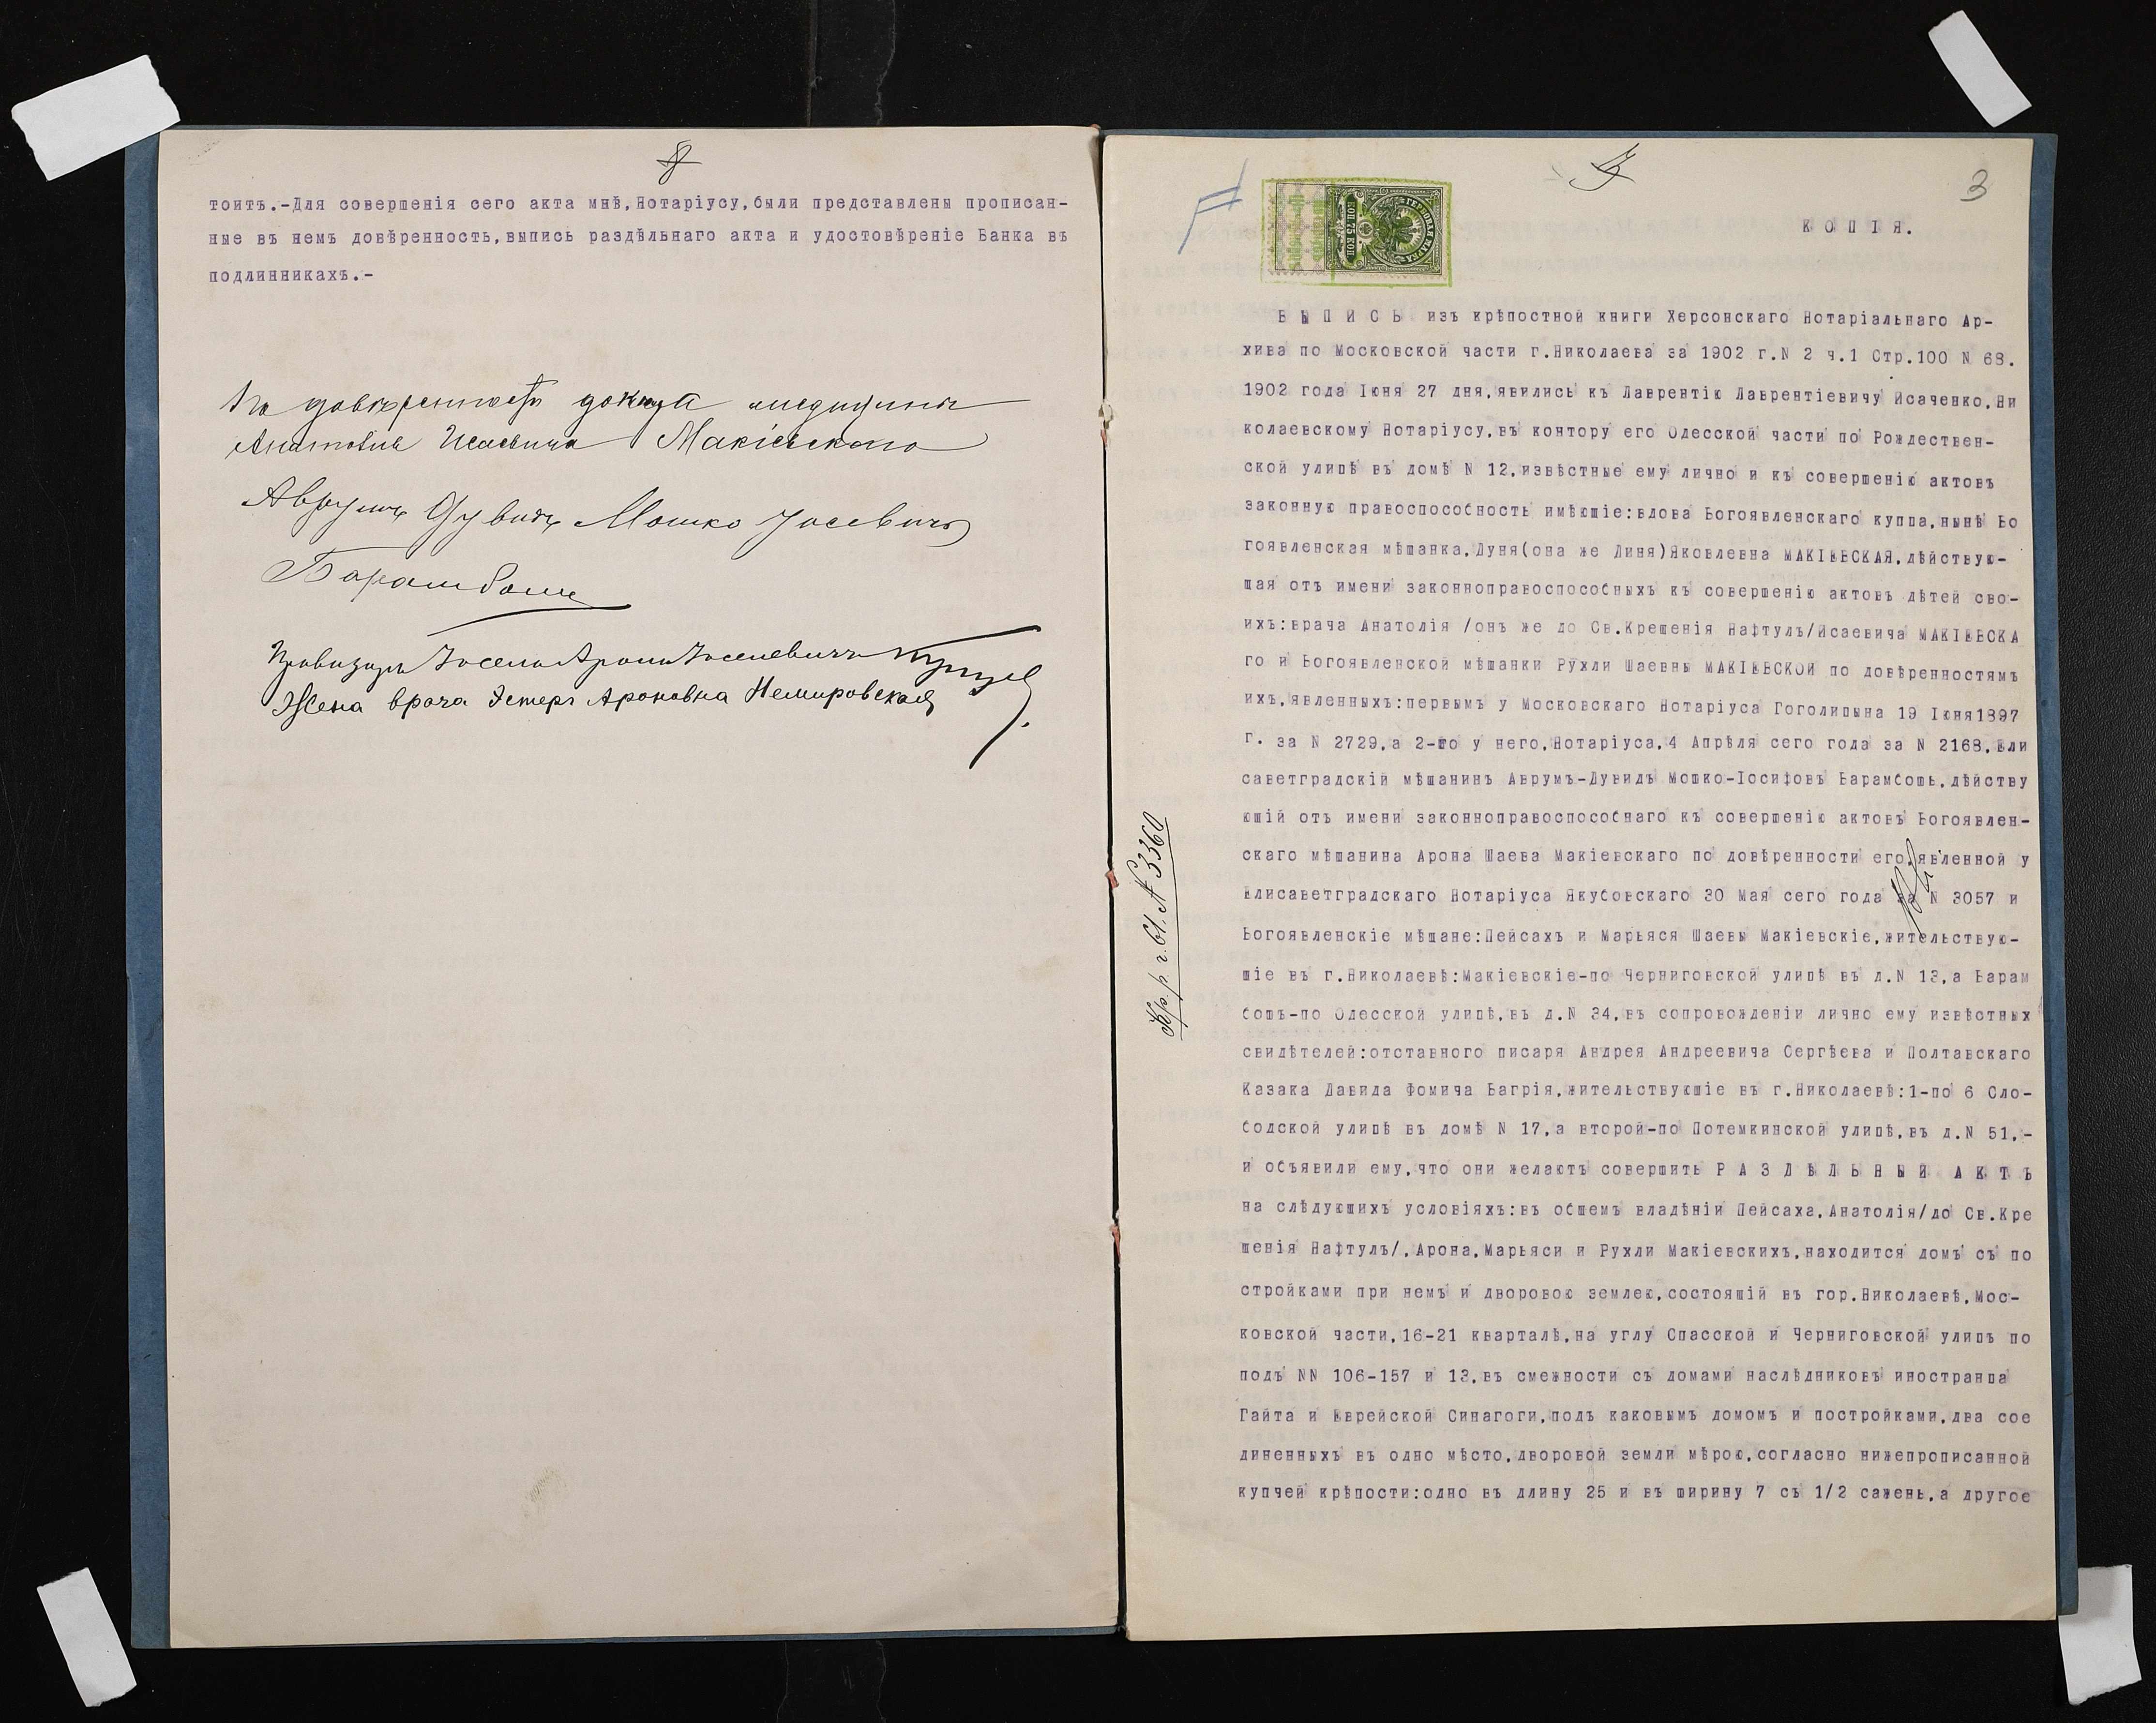 8
тоитъ.-Для совершенія сего акта мнѣ,Нотаріусу,были представлены прописан-
ные въ немъ довѣренность,выпись раздѣльнаго акта и удостовѣреніе Банка въ
подлинникахъ.-
По довѣренности доктора медицины
Анатолія Исаевича Макіевскаго
Аврумъ Дувидъ Мошко Іосевичъ
Барамбошъ
Провизоръ Іосель Аронъ Іоселевичъ
Жена врача Эстеръ Ароновна Немировская
3
КОПІЯ.
ГЕРБОВАЯ МАРКА
75 КОП
В Ы П И С Ь изъ крѣпостной книги Херсонскаго Нотаріальнаго Ар-
хива по Московской части г.Николаева за 1902 г.N 2 ч.1 Стр.100 N 68.
1902 года Іюня 27 дня,явились къ Лаврентію Лаврентіевичу Исаченко,Ни
колаевскому Нотаріусу,въ контору его Одесской части по Рождествен-
ской улицѣ въ домѣ N 12,извѣстные ему лично и къ совершенію актовъ
законную правоспособность имѣющіе:вдова Богоявленскаго купца,нынѣ Бо
гоявленская мѣщанка,Дуня(она же Диня)Яковлевна МАКІЕВСКАЯ,дѣйствую-
щая отъ имени законноправоспособныхъ къ совершенію актовъ дѣтей сво-
ихъ:врача Анатолія /онъ же до Св.Крещенія Нафтулъ/Исаевича МАКІЕВСКА
го и Богоявленской мѣщанки Рухли Шаевны МАКІЕВСКОЙ по довѣренностямъ
ихъ,явленныхъ:первымъ у Московскаго Нотаріуса Гоголицына 19 Іюня1897
г. за N 2729,а 2-ю у него,Нотаріуса,4 Апрѣля сего года за N 2168,Ели
саветградскій мѣщанинъ Аврумъ-Дувидъ Мошко-Іосифовъ Барамбошъ,дѣйству
ющій отъ имени законноправоспособнаго къ совершенію актовъ Богоявлен-
скаго мѣщанина Арона Шаева Макіевскаго по довѣренности его,явленной у
Елисаветградскаго Нотаріуса Якубовскаго 30 Мая сего года за N 3057 и
Богоявленскіе мѣщане:Пейсахъ и Марьяся Шаевы Макіевскіе,жительствую-
щіе въ г.Николаевѣ:Макіевскіе-по Черниговской улицѣ въ д.N 13,а Барам
бошъ-по Одесской улицѣ,въ д.N 34,въ сопровожденіи лично ему извѣстных
свидѣтелей:отставного писаря Андрея Андреевича Сергѣева и Полтавскаго
Казака Давида Фомича Багрія,жительствующіе въ г.Николаевѣ:1-по 6 Сло-
бодской улицѣ въ домѣ N 17,а второй-по Потемкинской улицѣ,въ д.N 51,-
и объявили ему,что они желаютъ совершить Р А З Д Ѣ Л Ь Н Ы Й А К Т Ъ
на слѣдующихъ условіяхъ:въ общемъ владѣніи Пейсаха,Анатолія/до Св.Кре
щенія Нафтулъ/,Арона,Марьяси и Рухли Макіевскихъ,находится домъ съ по
стройками при немъ и дворовою землею,состоящій въ гор.Николаевѣ,Мос-
ковской части,16-21 кварталѣ,на углу Спасской и Черниговской улицъ по
подъ NN 106-157 и 13,въ смежности съ домами наслѣдниковъ иностранца
Гайта и Еврейской Синагоги,подъ каковымъ домомъ и постройками,два сое
диненныхъ въ одно мѣсто,дворовой земли мѣрою,согласно нижепрописанной
купчей крѣпости:одно въ длину 25 и въ ширину 7 съ 1/2 сажень,а другое
Кр. р. г. 61. N 3360